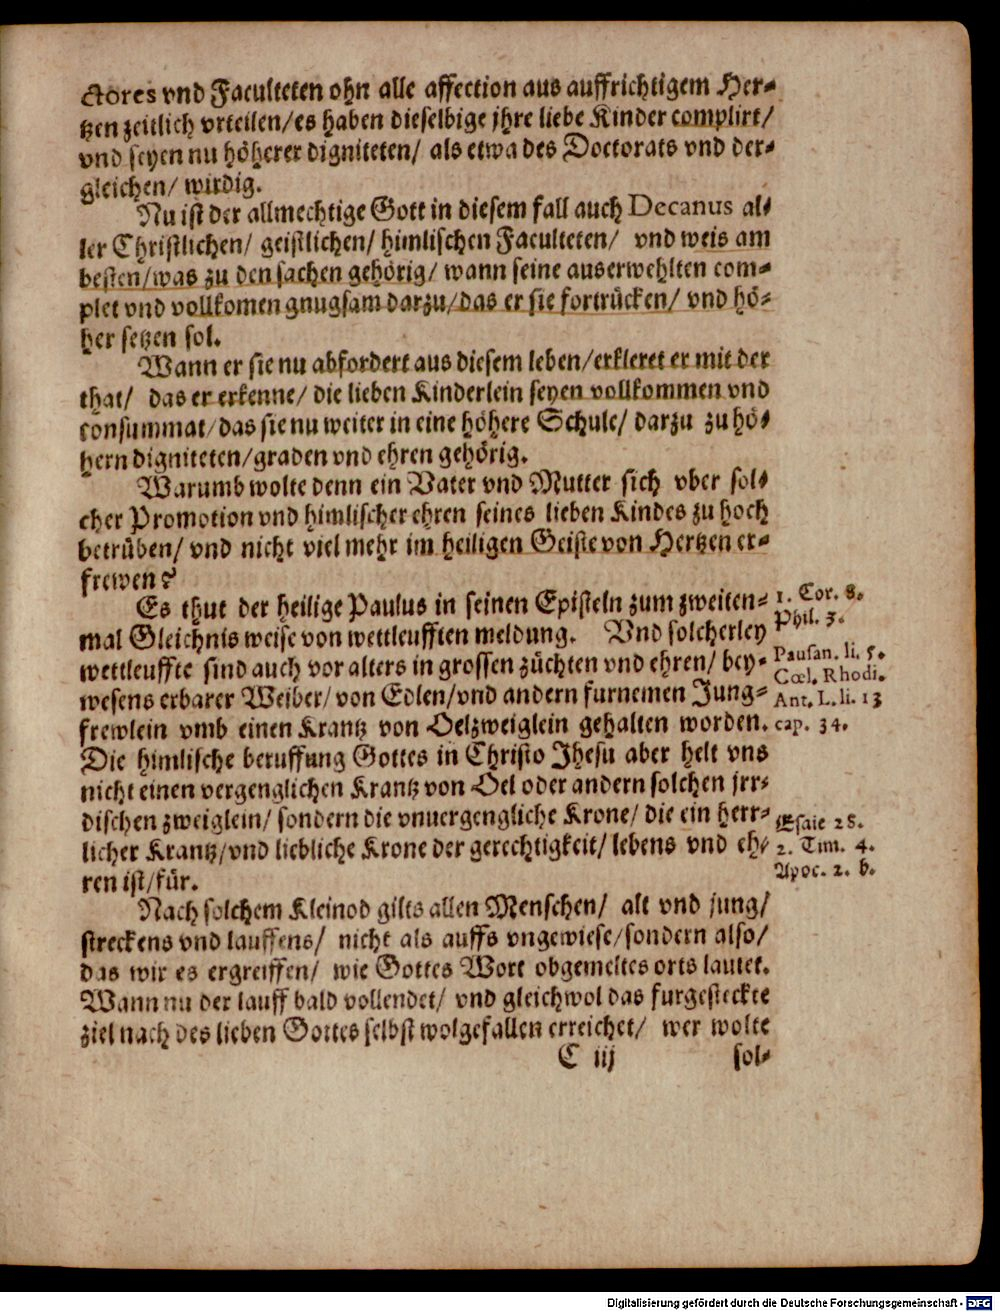 ctores vnd Faculteten ohn alle affection aus auffrichtigem Her-
tzen zeitlich vrteilen/ es haben dieselbige jhre liebe Kinder complirt/
vnd seyen nu höherer digniteten/ als etwa des Doctorats vnd der-
gleichen/ wirdig.
Nu ist der allmechtige Gott in diesem fall auch Decanus al-
ler Christlichen/ geistlichen/ himlischen Faculteten/ vnd weis am
besten/ was zu den sachen gehörig/ wann seine auserwehlten com-
plet vnd vollkomen gnugsam darzu/ das er sie fortrücken/ vnd hö-
her setzen sol.
Wann er sie nu abfordert aus diesem leben/ erkleret er mit der
that/ das er erkenne/ die lieben Kinderlein seyen vollkommen vnd
consummat/ das sie nu weiter in eine höhere Schule/ darzu zu hö-
hern digniteten/ graden vnd ehren gehörig.
Warumb wolte denn ein Vater vnd Mutter sich vber sol-
cher Promotion vnd himlischer ehren seines lieben Kindes zu hoch
betrüben/ vnd nicht viel mehr im heiligen Geiste von Hertzen er-
frewen?
Es thut der heilige Paulus in seinen Episteln zum zweiten-
mal Gleichnis weise von wettleufften meldung. Vnd solcherley
wettleuffte sind auch vor alters in grossen züchten vnd ehren/ bey-
wesens erbarer Weiber/ von Edlen/ vnd andern furnemen Jung-
frewlein vmb einen Krantz von Oelzweiglein gehalten worden.
Die himlische beruffung Gottes in Christo Jhesu aber helt vns
nicht einen vergenglichen Krantz von Oel oder andern solchen jrr-
dischen zweiglein/ sondern die vnuergengliche Krone/ die ein herr-
licher Krantz/ vnd liebliche Krone der gerechtigkeit/ lebens vnd eh-
ren ist/ für.
Nach solchem Kleinod gilts allen Menschen/ alt vnd jung/
streckens vnd lauffens/ nicht als auffs vngewiese/ sondern also/
das wir es ergreiffen/ wie Gottes Wort obgemeltes orts lautet.
Wann nu der lauff bald vollendet/ vnd gleichwol das furgesteckte
ziel nach des lieben Gottes selbst wolgefallen erreichet/ wer wolte
C iij
sol-
1. Cor. 8.
Phil. 3.
Pausan. li. 5.
Cœl. Rhodi.
Ant. L. li. 13
cap. 34.
Esaie 28.
2. Tim. 4.
Apoc. 2. b.
Digitalisierung gefördert durch die Deutsche Forschungsgemeinschaft - DFG